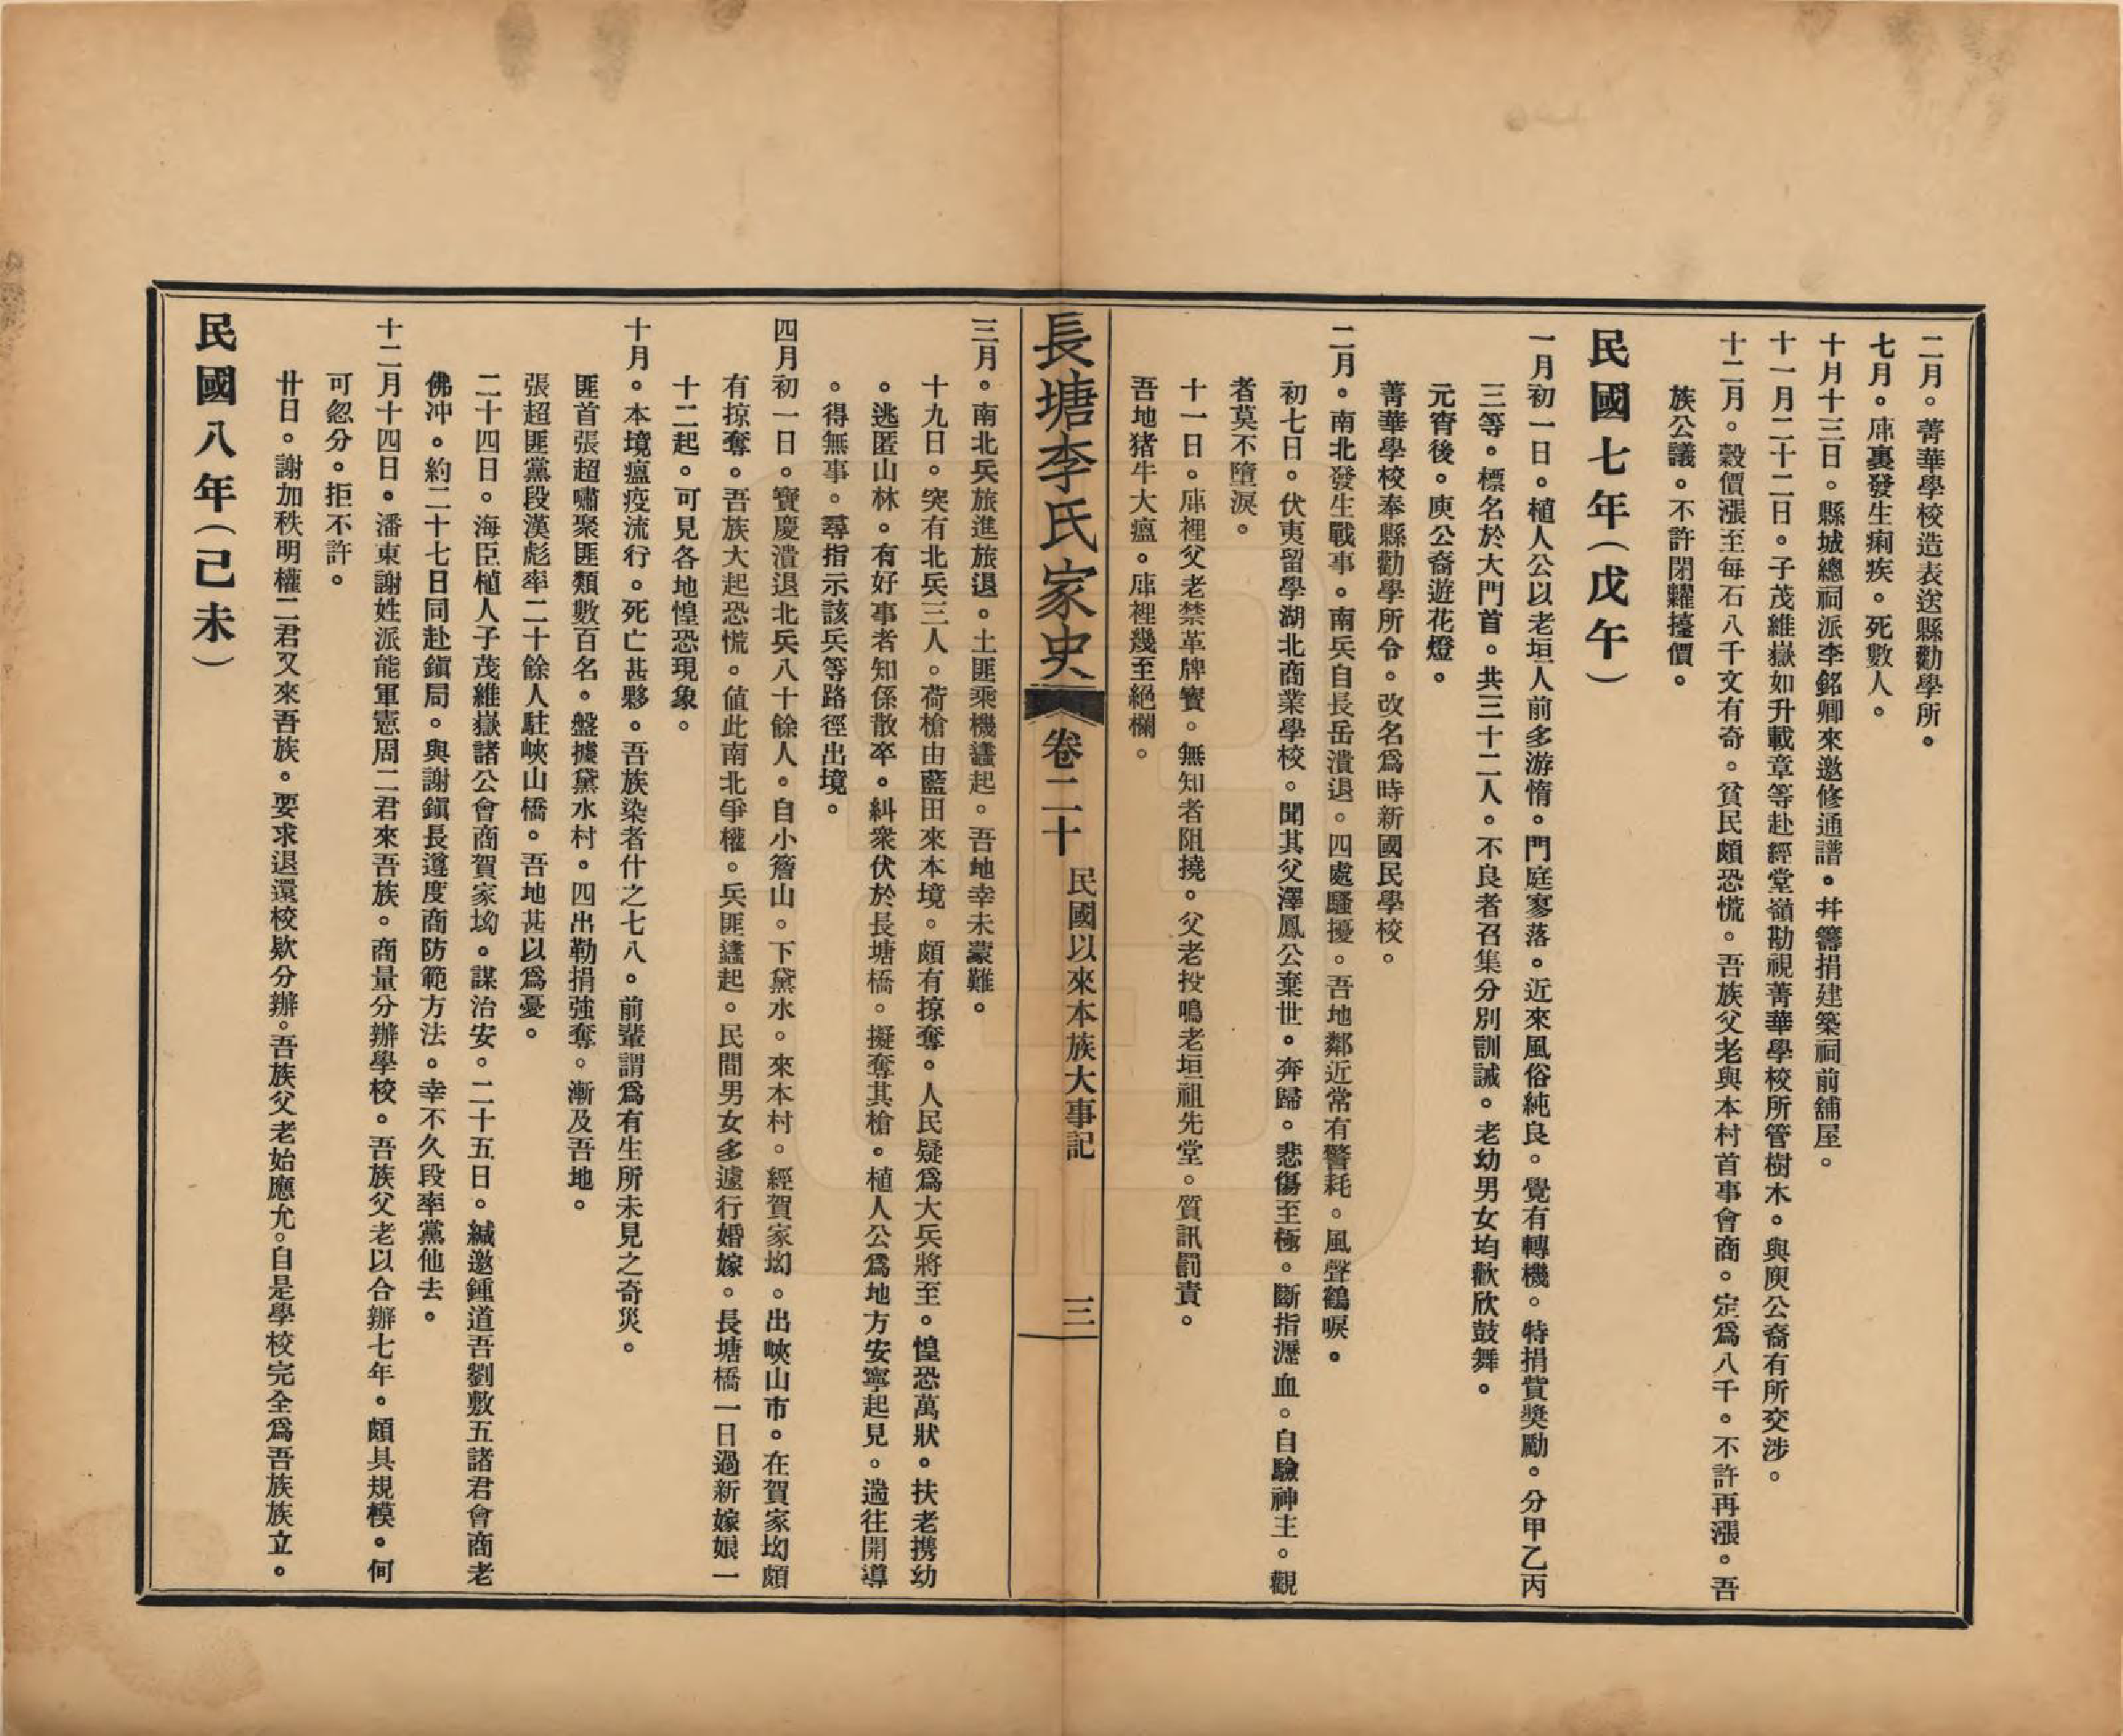 二月。菁華學校造表送縣勸學所。
七月。庙裏發生痢疾。死數人。
十月十三日。縣城總祠派李銘卿來邀修通譜。幷籌捐建築祠前舖屋。
十一月二十二日。子茂維嶽如升載章等赴經堂嶺勘視菁華學校所管樹木。與庾公裔有所交涉。
十二月。穀價漲至每石八千文有奇。貧民頗恐慌。吾族父老與本村首事會商。定爲八千。不許再漲。吾
族公議。不許閉糶擡價。
民國七年（戊午）
一月初一日。植人公以老垣人前多游惰。門庭寥落。近來風俗純良。覺有轉機。特捐貲獎勵。分甲乙丙
三等。標名於大門首。共三十二人。不良者召集分別訓誡。老幼男女均歡欣鼓舞。
元宵後。庾公裔遊花燈。
菁華學校奉縣勸學所令。改名爲時新國民學校。
二月。南北發生戰事。南兵自長岳潰退。四處騷擾。吾地鄰近常有警耗。風聲鶴唳。
初七日。伏夷留學湖北商業學校。聞其父澤鳳公棄世。奔歸。悲傷至極。斷指瀝血。自驗神主。觀
者莫不墮淚。
十一日。庙裡父老禁革牌寶。無知者阻撓。父老投鳴老垣祖先堂。質訊罰責。
吾地猪牛大瘟。庙裡幾至絕欄。
長塘李氏家史
卷二十
民國以來本族大事記
三
三月。南北兵旅進旅退。土匪乘機蠭起。吾地幸未蒙難。
十九日。突有北兵三人。荷槍由藍田來本境。頗有掠奪。人民疑爲大兵將至。惶恐萬狀。扶老携幼
。逃匿山林。有好事者知係散卒。糾衆伏於長塘橋。擬奪其槍。植人公爲地方安寧起見。遄往開導
。得無事。尋指示該兵等路徑出境。
四月初一日。寶慶潰退北兵八十餘人。自小簷山。下黛水。來本村。經賀家坳。出峽山市。在賀家坳頗
有掠奪。吾族大起恐慌。値此南北爭權。兵匪蠭起。民間男女多遽行婚嫁。長塘橋一日過新嫁娘一
十二起。可見各地惶恐現象。
十月。本境瘟疫流行。死亡甚夥。吾族染者什之七八。前輩謂爲有生所未見之奇災。
匪首張超嘯聚匪類數百名。盤據黛水村。四出勒捐強奪。漸及吾地。
張超匪黨段漢彪率二十餘人駐峽山橋。吾地甚以爲憂。
二十四日。海臣植人子茂維嶽諸公會商賀家坳。謀治安。二十五日。緘邀鍾道吾劉敷五諸君會商老
佛冲。約二十七日同赴鎭局。與謝鎭長遵度商防範方法。幸不久段率黨他去。
十二月十四日。潘東謝姓派能軍憲周二君來吾族。商量分辦學校。吾族父老以合辦七年。頗具規模。何
可忽分。拒不許。
廿日。謝加秩明權二君又來吾族。要求退還校欵分辦。吾族父老始應允。自是學校完全爲吾族族立。
民國八年（己未）